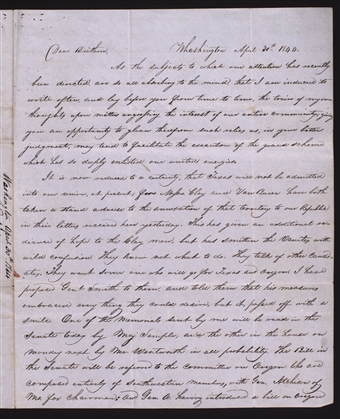 Dear Brethren, Washington April 30th 1844.
As the subjects to which our attention has recently
been directed are so all absorbing to the mind that I am induced to
write often, and lay before you from time to time, the train of my own
thoughts upon matters engrossing the interest of our entire community, giving
you an opportunity to glean therefrom such relics as, in your better
judgement, may tend to facilitate the execution of the grand scheme
which has so deeply enlisted our united energies.
It is now reduced to a certainty, that Texas will not be admitted
into our union, at present, for Messrs Clay and Van Buren have both
taken a stand adverse to the annexation of that Country to our Republic
in their letters received here yesterday. This has given an additional
of hope to the Clay men, but has smitten the Vanites with
wild confusion. They know not what to do. They talk of other Candi-
dates. They want some one who will go for Texas and Oregon. I have
proposed Genl. Smith to them, and told them that his measures
embraced every thing they could desire; but it passed off with a
smile. One of the Memorials sent by me will be used in the
Senate today by Maj. Semple, and the other in the House on
Monday next by Mr Wentworth in all probability. The Bill in
the Senate will be referred to the committee on Oregon who are
composed entirely of Southwestern members, with Gen. Atchison of
Mo. for Chairman; and Gen A. having introduced a bill on Oregon
Washington April 30th 1844